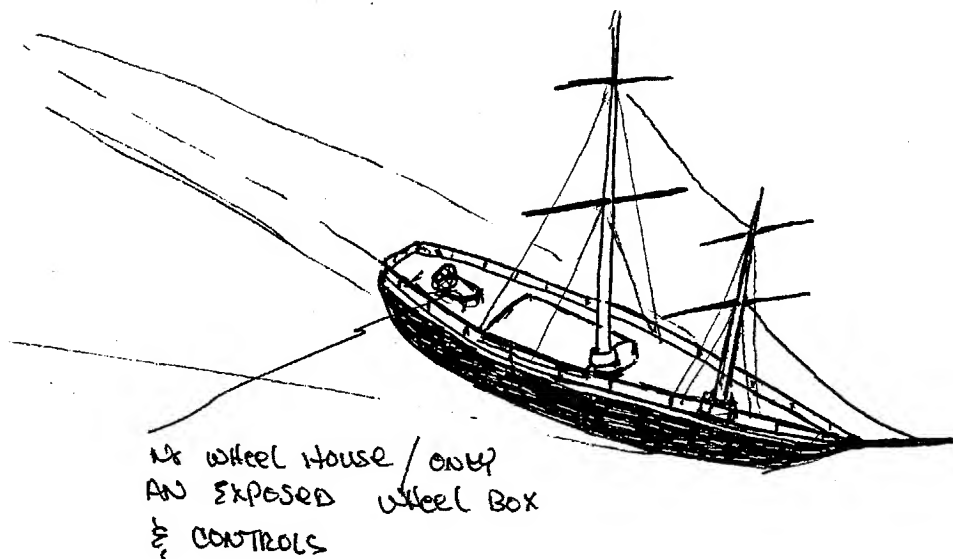 NO WHEEL HOUSE / ONLY
AN EXPOSED WHEEL BOX
& CONTROLS